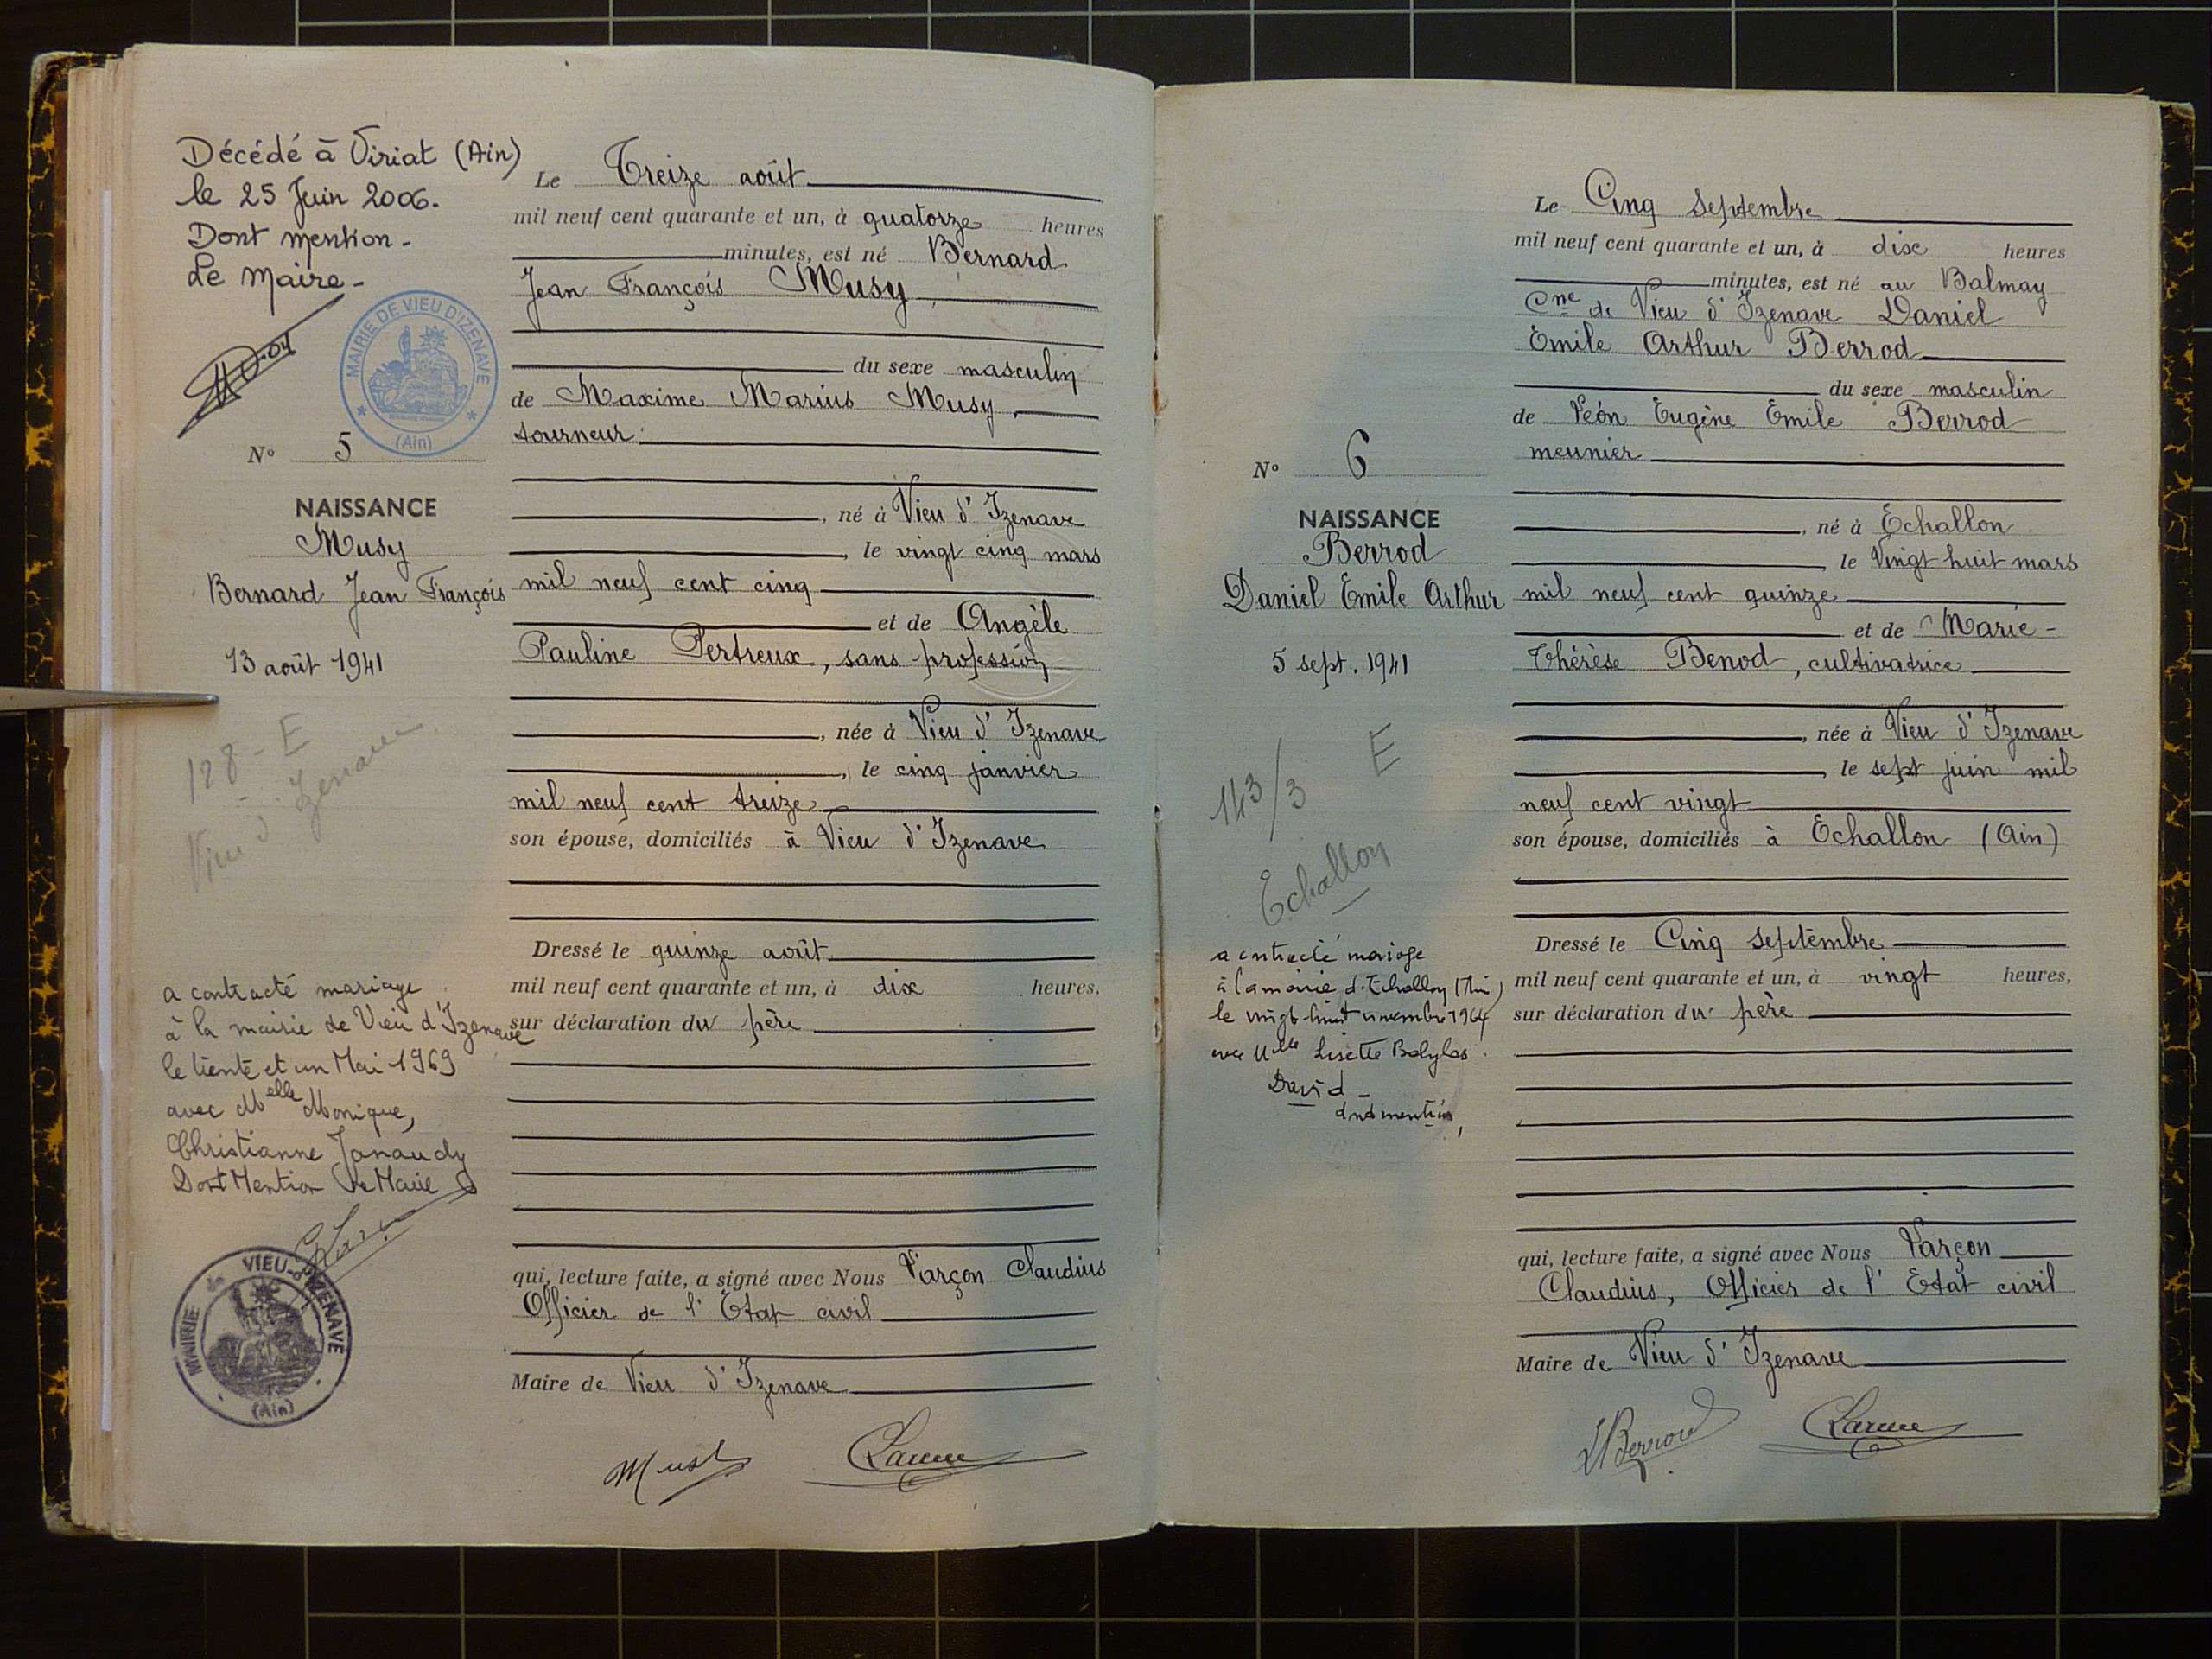 Décédé à Viriat (Ain)
le 25 Juin 2006.
Dont mention-
Le Maire-
MAIRIE DE VIEU D'IZENAVE
(Ain)
N° 5
NAISSANCE
Musy
Bernard Jean François
13 août 1941
128 - E
Vieu d'Izenave
a contracté mariage
à la mairie de Vieu d'Izenave
le trente et un Mai 1969
avec Melle Monique,
Christianne Janaudy
Dont Mention Le Maire
MAIRIE de VIEU-d'IZENAVE
(Ain)
Le Treize août
mil neuf cent quarante et un, à quatorze heures
minutes, est né Bernard
Jean François Musy,
du sexe masculin
de Maxime Marius Musy,
tourneur
, né à Vieu d'Izenave
, le vingt cinq mars
mil neuf cent cinq
et de Angèle
Pauline Pertreux, sans profession
, née à Vieu d'Izenave
, le cinq janvier
mil neuf cent treize
son épouse, domiciliés à Vieu d'Izenave
Dressé le quinze août
mil neuf cent quarante et un, à dix heures,
sur déclaration du père
qui, lecture faite, a signé avec Nous Varçon Claudius
Officier de l'Etat civil
Maire de Vieu d'Izenave
Musy
N° 6
NAISSANCE
Berrod
Daniel Emile Arthur
5 sept. 1941
143/3 E
Echallon
a contracté mariage
à la mairie d'Echallon (Ain)
le vingt huit novembre 1964
avec Melle Lisette Babylas
David -
dont mention,
Le Cinq Septembre
mil neuf cent quarante et un, à dix heures
minutes, est né au Balmay
Cne de Vieu d'Izenave Daniel
Emile Arthur Berrod
du sexe masculin
de Léon Eugène Emile Berrod
meunier
, né à Echallon
, le Vingt huit mars
mil neuf cent quinze
et de Marie-
Thérèse Benod, cultivatrice
, née à Vieu d'Izenave
, le sept juin mil
neuf cent vingt
son épouse, domiciliés à Echallon (Ain)
Dressé le Cinq Septembre
mil neuf cent quarante et un, à vingt heures,
sur déclaration du père
qui, lecture faite, a signé avec Nous Varçon
Claudius, Officier de l'Etat civil
Maire de Vieu d'Izenave
Berrod